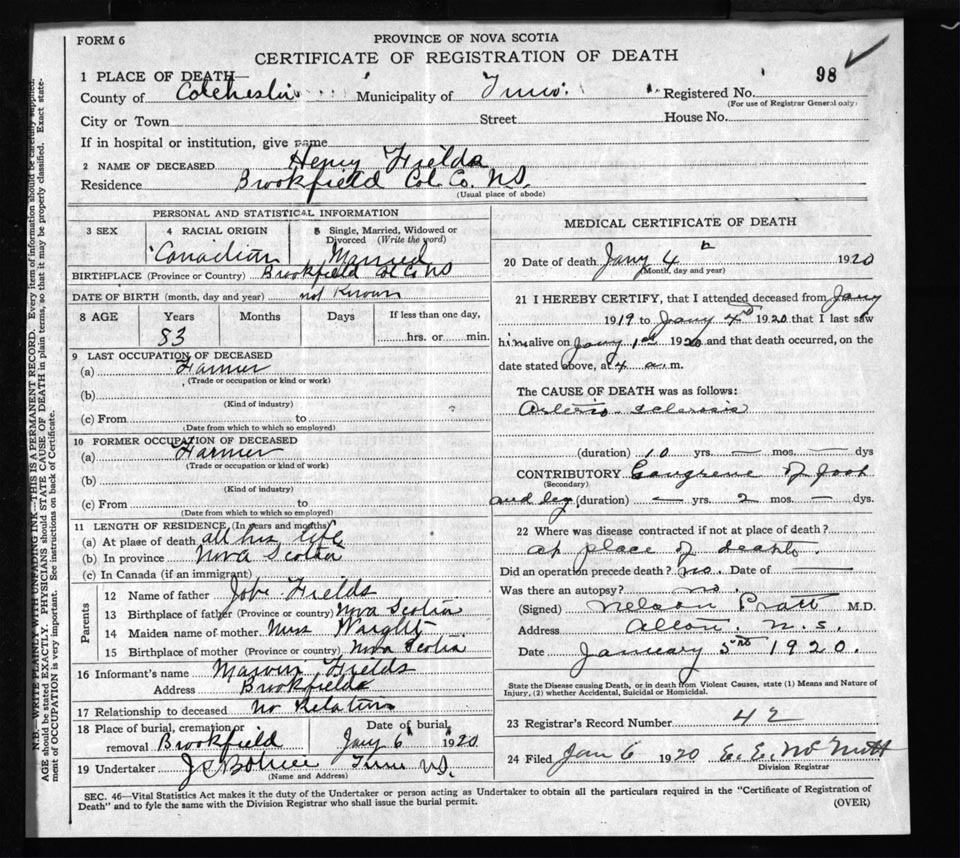 FORM 6
PROVINCE OF NOVA SCOTIA
CERTIFICATE OF REGISTRATION OF DEATH
98
1 PLACE OF DEATH—
County of Colchester Municipality of Truro Registered No.
(For use of Registrar General only)
City or Town Street House No.
If in hospital or institution, give name
2 NAME OF DECEASED Henry Fields
Residence Brookfield Col. Co. N.S.
(Usual place of abode)
PERSONAL AND STATISTICAL INFORMATION
3 SEX 4 RACIAL ORIGIN 5 Single, Married, Widowed or Divorced (Write the word)
Canadian Married
BIRTHPLACE (Province or Country) Brookfield Col Co NS
DATE OF BIRTH (month, day and year) not Known
8 AGE Years Months Days If less than one day,
83 hrs. or min.
9 LAST OCCUPATION OF DECEASED
(a) Farmer
(Trade or occupation or kind or work)
(b)
(Kind of industry)
(c) From to
(Date from which to which so employed)
10 FORMER OCCUPATION OF DECEASED
(a) Farmer
(Trade or occupation or kind of work)
(b)
(Kind of industry)
(c) From to
(Date from which to which so employed)
11 LENGTH OF RESIDENCE (In years and months)
(a) At place of death all his life
(b) In province Nova Scotia
(c) In Canada (if an immigrant)
Parents
12 Name of father Jobe Fields
13 Birthplace of father (Province or country) Nova Scotia
14 Maiden name of mother Miss Wright
15 Birthplace of mother (Province or country) Nova Scotia
16 Informant's name Fields
Address Brookfield
17 Relationship to deceased No Relation
18 Place of burial, cremation or removal Brookfield Date of burial Jany 6 1920
19 Undertaker Truro N.S.
(Name and Address)
MEDICAL CERTIFICATE OF DEATH
20 Date of death Jany 4th 1920
(Month, day and year)
21 I HEREBY CERTIFY, that I attended deceased from Jany
1919 to Jany 4th 1920 that I last saw
him alive on Jany 1st 1920 and that death occurred, on the
date stated above, at 4 a.m.
The CAUSE OF DEATH was as follows:
Arterio sclerosis
(duration) 10 yrs. — mos. — dys
CONTRIBUTORY Gangrene of foot
(Secondary)
and leg (duration) — yrs. 2 mos. — dys.
22 Where was disease contracted if not at place of death?
At place of death.
Did an operation precede death? no. Date of
Was there an autopsy? no.
(Signed) Nelson Pratt M.D.
Address N.S.
Date January 5th 1920.
State the Disease causing Death, or in death from Violent Causes, state (1) Means and Nature of
Injury, (2) whether Accidental, Suicidal or Homicidal.
23 Registrar's Record Number 42
24 Filed Jan 6 1920 E. E. McNutt
Division Registrar
SEC. 46—Vital Statistics Act makes it the duty of the Undertaker or person acting as Undertaker to obtain all the particulars required in the "Certificate of Registration of
Death" and to fyle the same with the Division Registrar who shall issue the burial permit.
(OVER)
N.B.—WRITE PLAINLY WITH UNFADING INK—THIS IS A PERMANENT RECORD. Every item of information should be carefully supplied.
AGE should be stated EXACTLY. PHYSICIANS should STATE CAUSE OF DEATH in plain terms, so that it may be properly classified. Exact state-
ment of OCCUPATION is very important. See instructions on back of Certificate.